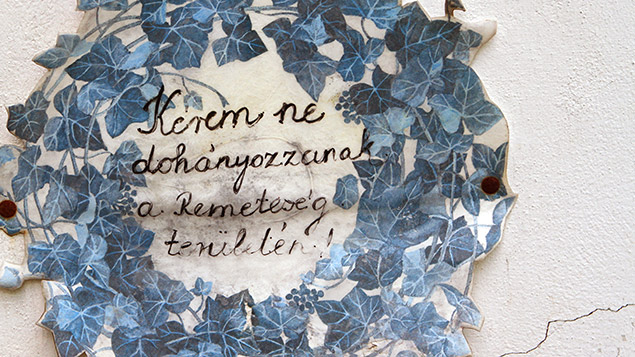 Kérem ne
dohányozzanak
a Remeteség
területén!